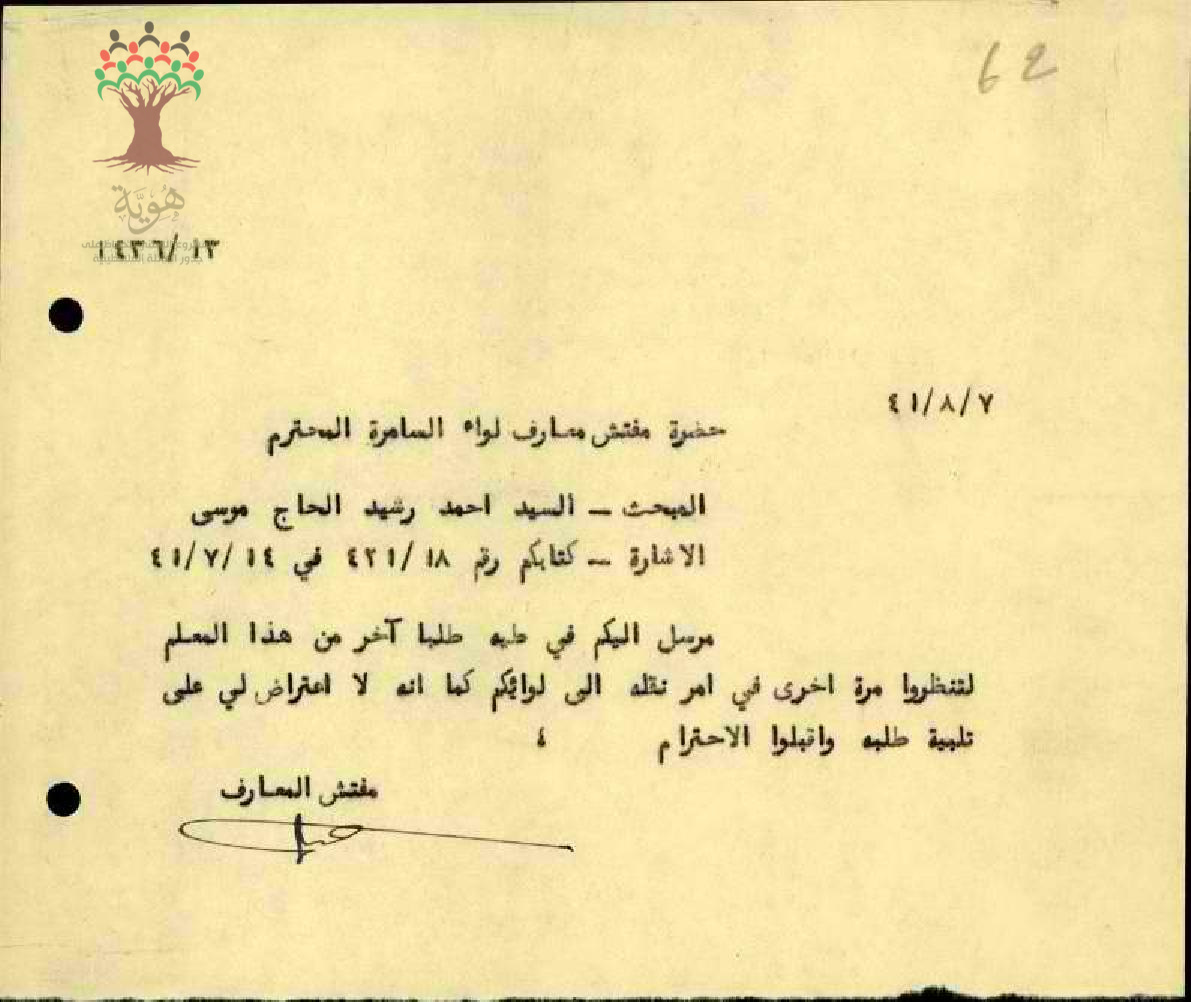 62
هوية
١٤٣٦/١٣
٤١/٨/٧
حضرة مفتش معارف لواء السامرة المحترم
المبحث – السيد احمد رشيد الحاج موسى
الاشارة – كتابكم رقم ٤٢١/١٨ في ٤١/٧/١٤
مرسل اليكم في طيه طلبا آخر من هذا المعلم
لتنظروا مرة اخرى في امر نقله الى لوائكم كما انه لا اعتراض لي على
تلبية طلبه واقبلوا الاحترام ،
مفتش المعارف